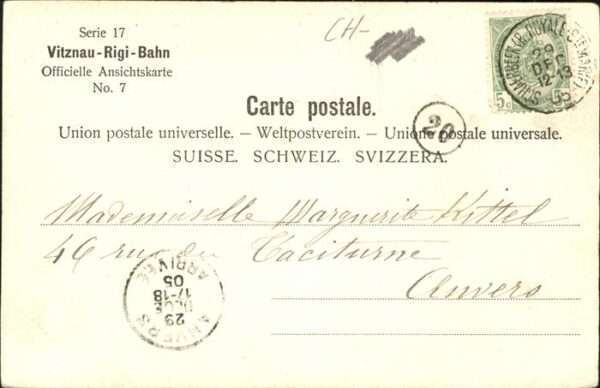 Serie 17
Vitznau-Rigi-Bahn
Officielle Ansichtskarte
No. 7
CH-
5c
29
DEC
12-13
05
Carte postale.
20
Union postale universelle. — Weltpostverein. — Unione postale universale.
SUISSE. SCHWEIZ. SVIZZERA.
Mademoiselle Marguerite Kittel
46 rue du Taciturne
Anvers
ANVERS
ARRIVÉE
29
DEC
17-18
05